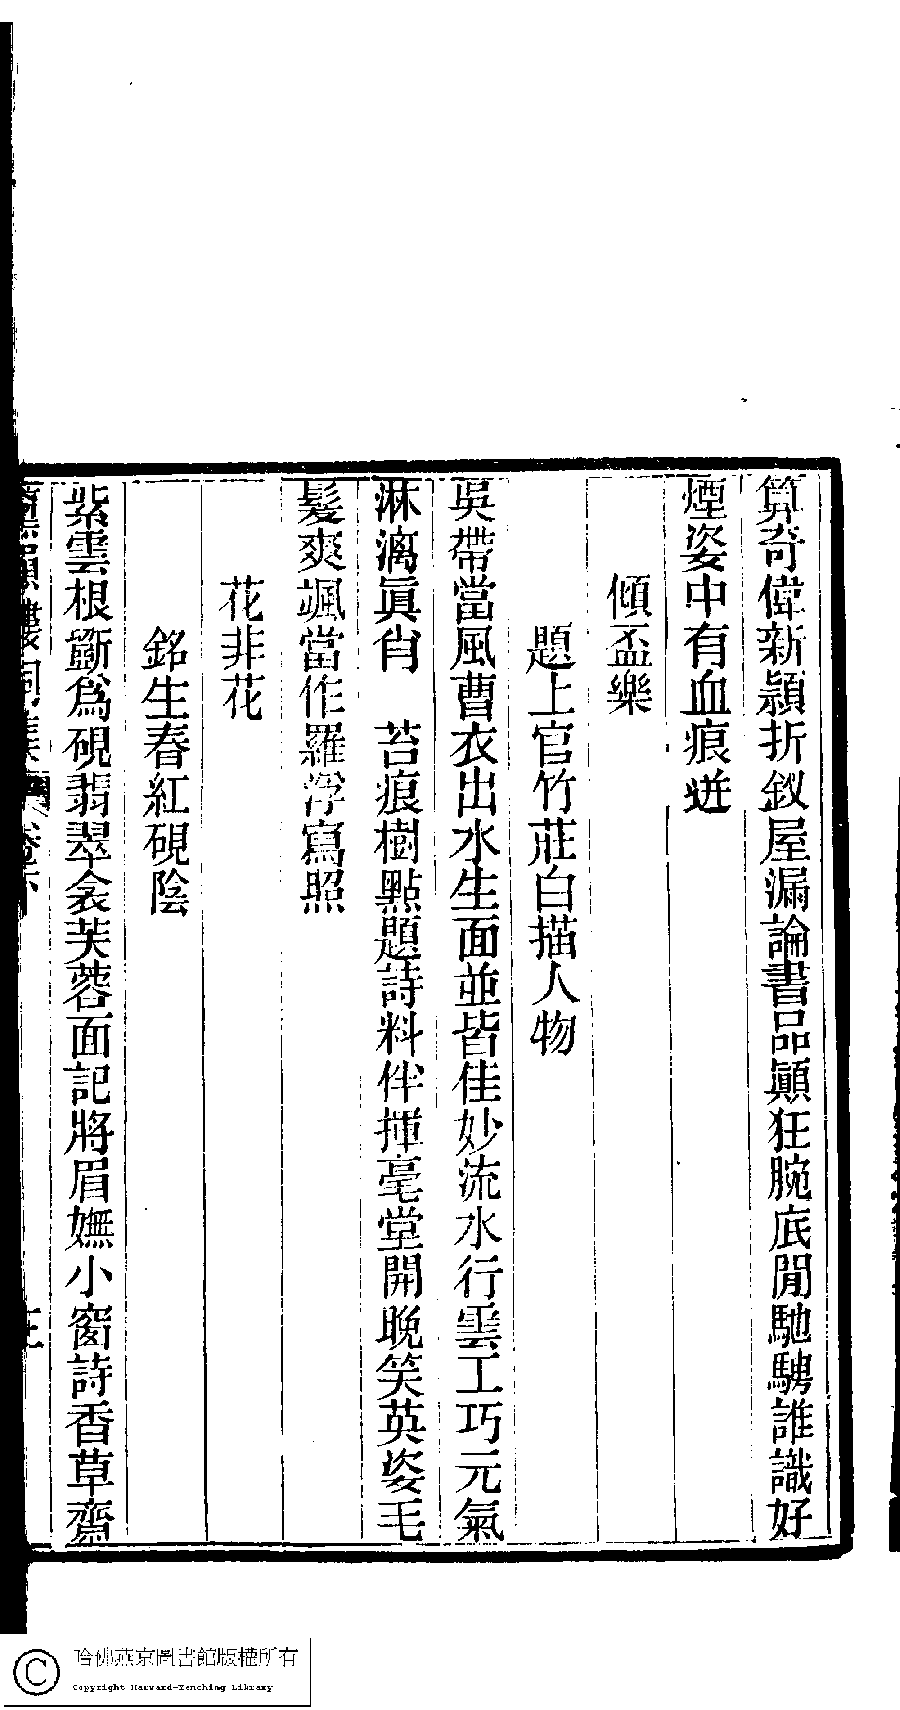 算奇偉新穎折釵屋漏論書品顚狂腕底閒馳騁誰識好
煙姿中有血痕迸
傾盃樂
題上官竹莊白描人物
吳帶當風曹衣出水生面並皆佳妙流水行雲工巧元氣
淋漓眞肖　苔痕樹點題詩料伴揮毫堂開晚笑英姿毛
髮爽颯當作羅浮寫照
花非花
銘生春紅硯陰
紫雲根斵爲硯翡翠衾芙蓉面記將眉嫵小窗詩香草齋
哈佛燕京圖書館版權所有
Copyright Harvard-Yenching Library